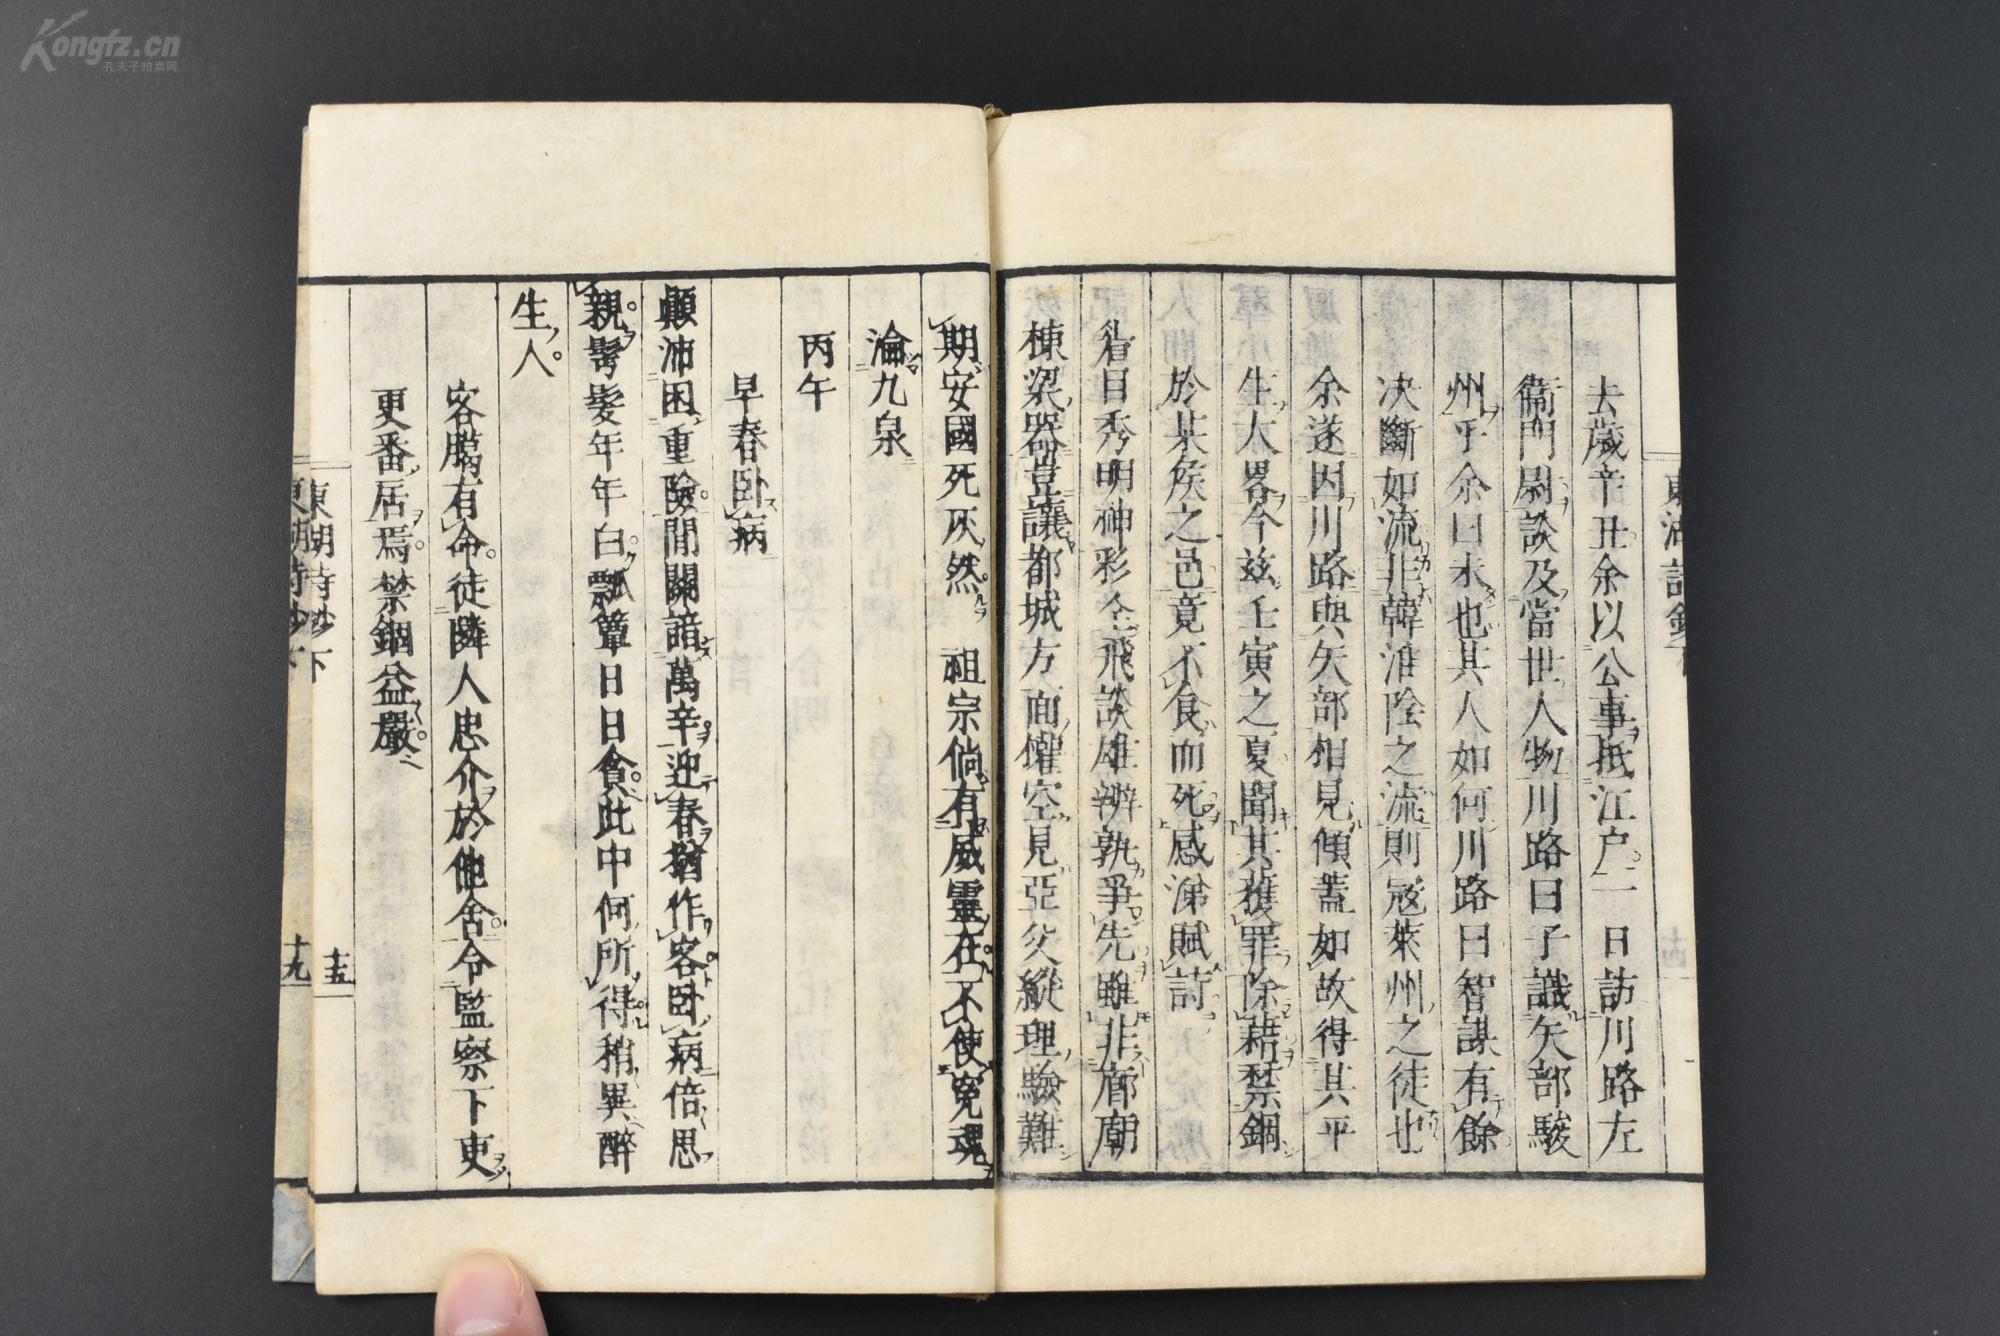 去歲辛丑余以公事抵江戶一日訪川路左
衞門尉談及當世人物川路曰子識矢部駿
州乎余曰未也其人如何川路曰智謀有餘
决斷如流非韓淮陰之流則冦萊州之徒也
余遂因川路與矢部相見傾蓋如故得其平
生大畧今玆壬寅之夏聞其獲罪除藉禁錮
於某侯之邑竟不食而死感涕賦詩
眉目秀明神彩全飛談雄辨孰爭先雖非廊廟
棟梁器豈讓都城方面權空見亞父縱理驗難
期安國死灰然　祖宗倘有威靈在不使寃魂
淪九泉
丙午
早春臥病
顚沛困重險間關諳萬辛迎春猶作客臥病倍思
親髩髮年年白瓢簞日日貧此中何所得稍異醉
生人
客臈有命徒隣人忠介於他舍令監察下吏
更番居焉禁錮益嚴
東湖詩鈔下
十五
東湖詩鈔下
十九
東湖詩鈔
Kongfz.cn
孔夫子拍卖网